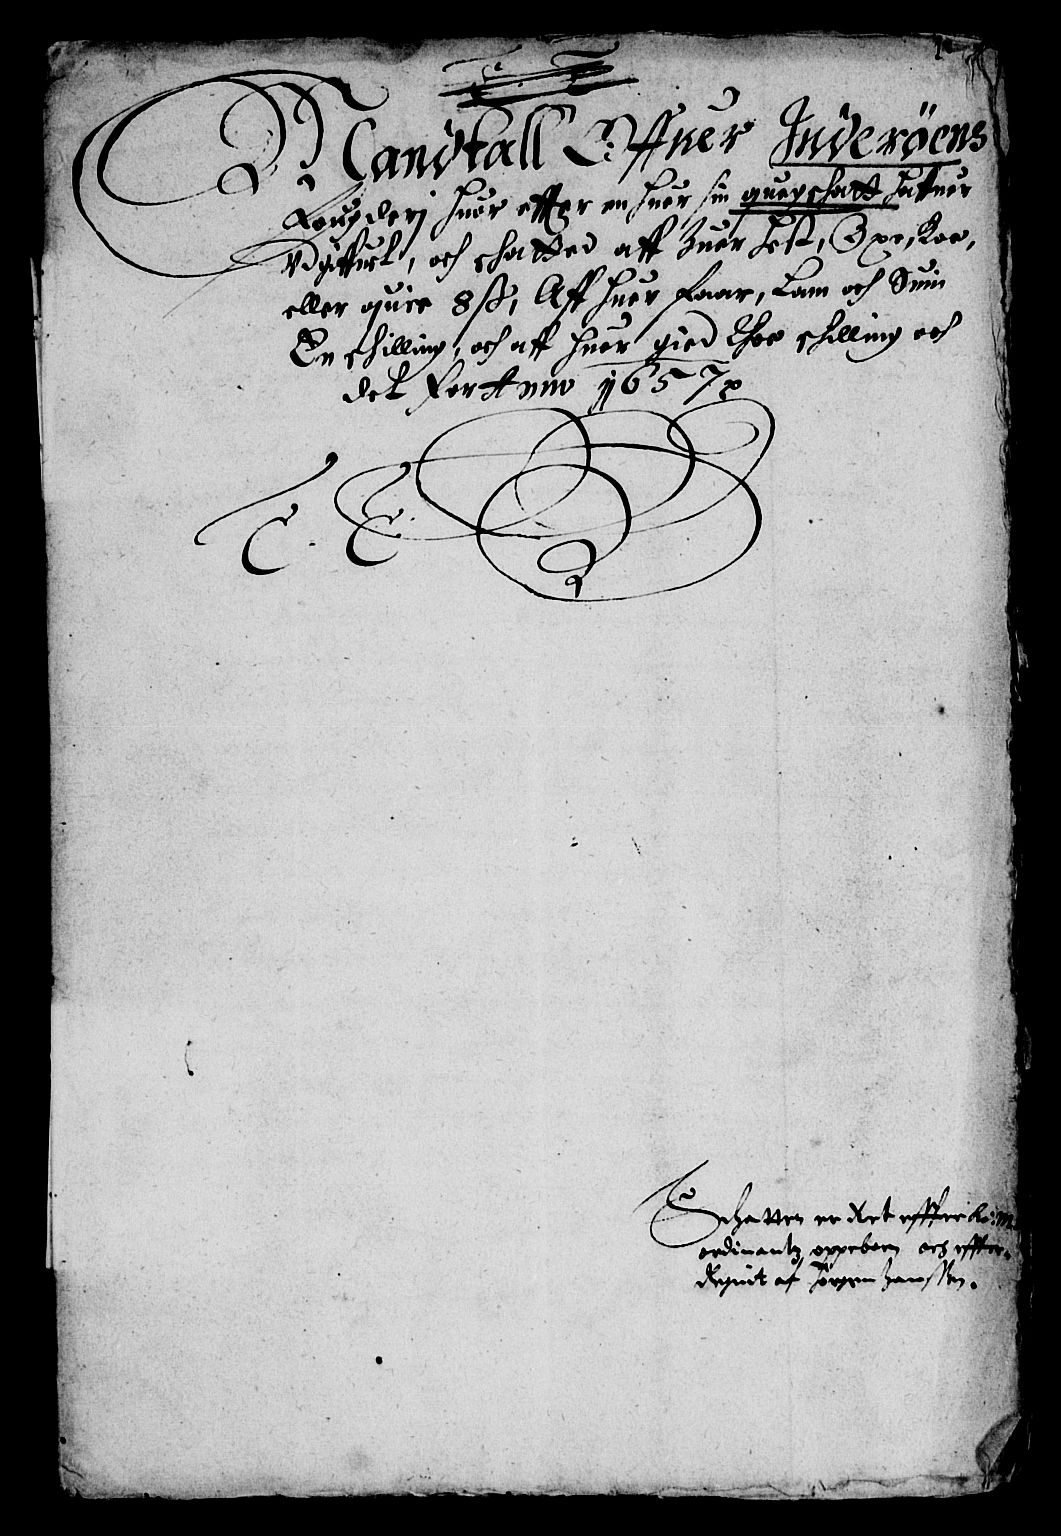 Mandtall Offuer Inderöens
Fougderj huor effter en huer sin quegschatt haffuer
Vdgiffuet, och schatted aff huer hest, Oxe, Koe,
eller quie 8 ß, Aff huer Faar, Lam och Suin
En schilling, och aff huer gied thoe schilling och
det for Anno 1657
Schatten er Ret effter Ko: M:
ordinantz oppeboren och effter-
Regnit af Jörgen Janssen.